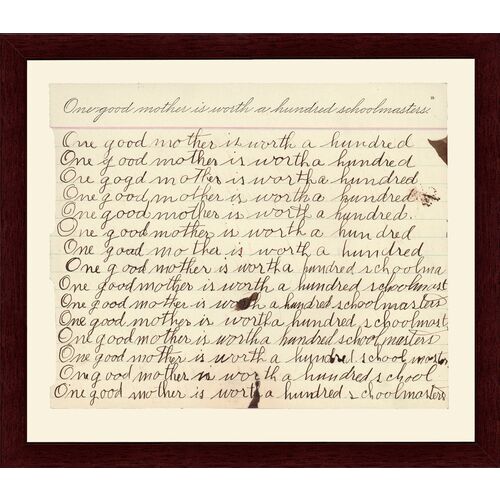 One good mother is worth a hundred schoolmasters.
One good mother is worth a hundred
One good mother is worth a hundred
One gogd mother is worth a hundred
One good mother is worth a hundred
One good mother is worth a hundred.
One good mother is worth a hundred
One good mother is worth a hundred
One good mother is worth a hundred schoolma
One good mother is worth a hundred schoolmast
One good mother is worth a hundred schoolmasters
One good mother is worth a hundred schoolmast
One good mother is worth a hundred schoolmasters
One good mother is worth a hundred school maste
One good mother is worth a hundred school
One good mother is worth a hundred schoolmasters